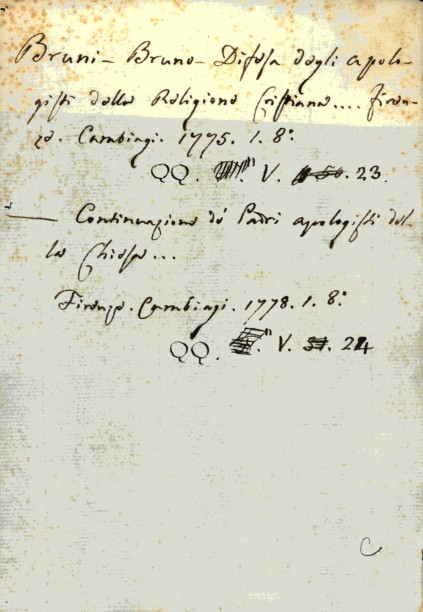 Bruni - Bruno - Difesa degli apolo-
gisti della Religione Cristiana.... Firen-
ze. Cambiagi. 1775. 1. 8.°
QQ. V. 23.
— Continuazione de' Padri apologisti del-
la Chiesa...
Firenze. Cambiagi. 1778. 1. 8.°
QQ. V. 24
C